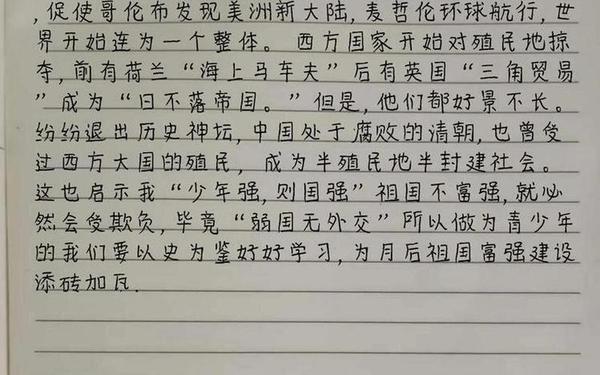 ,促使哥伦布发现美洲新大陆,麦哲伦环球航行,世
界开始连为一个整体。西方国家开始对殖民地掠
夺,前有荷兰“海上马车夫”后有英国“三角贸易
”成为“日不落帝国。”但是,他们都好景不长。
纷纷退出历史神坛,中国处于腐败的清朝,也曾受
过西方大国的殖民,成为半殖民地半封建社会。
这也启示我“少年强,则国强”祖国不富强,就必
然会受欺负,毕竟“弱国无外交”所以做为青少年
的我们要以史为鉴好好学习,为月后祖国富强建设
添砖加瓦.